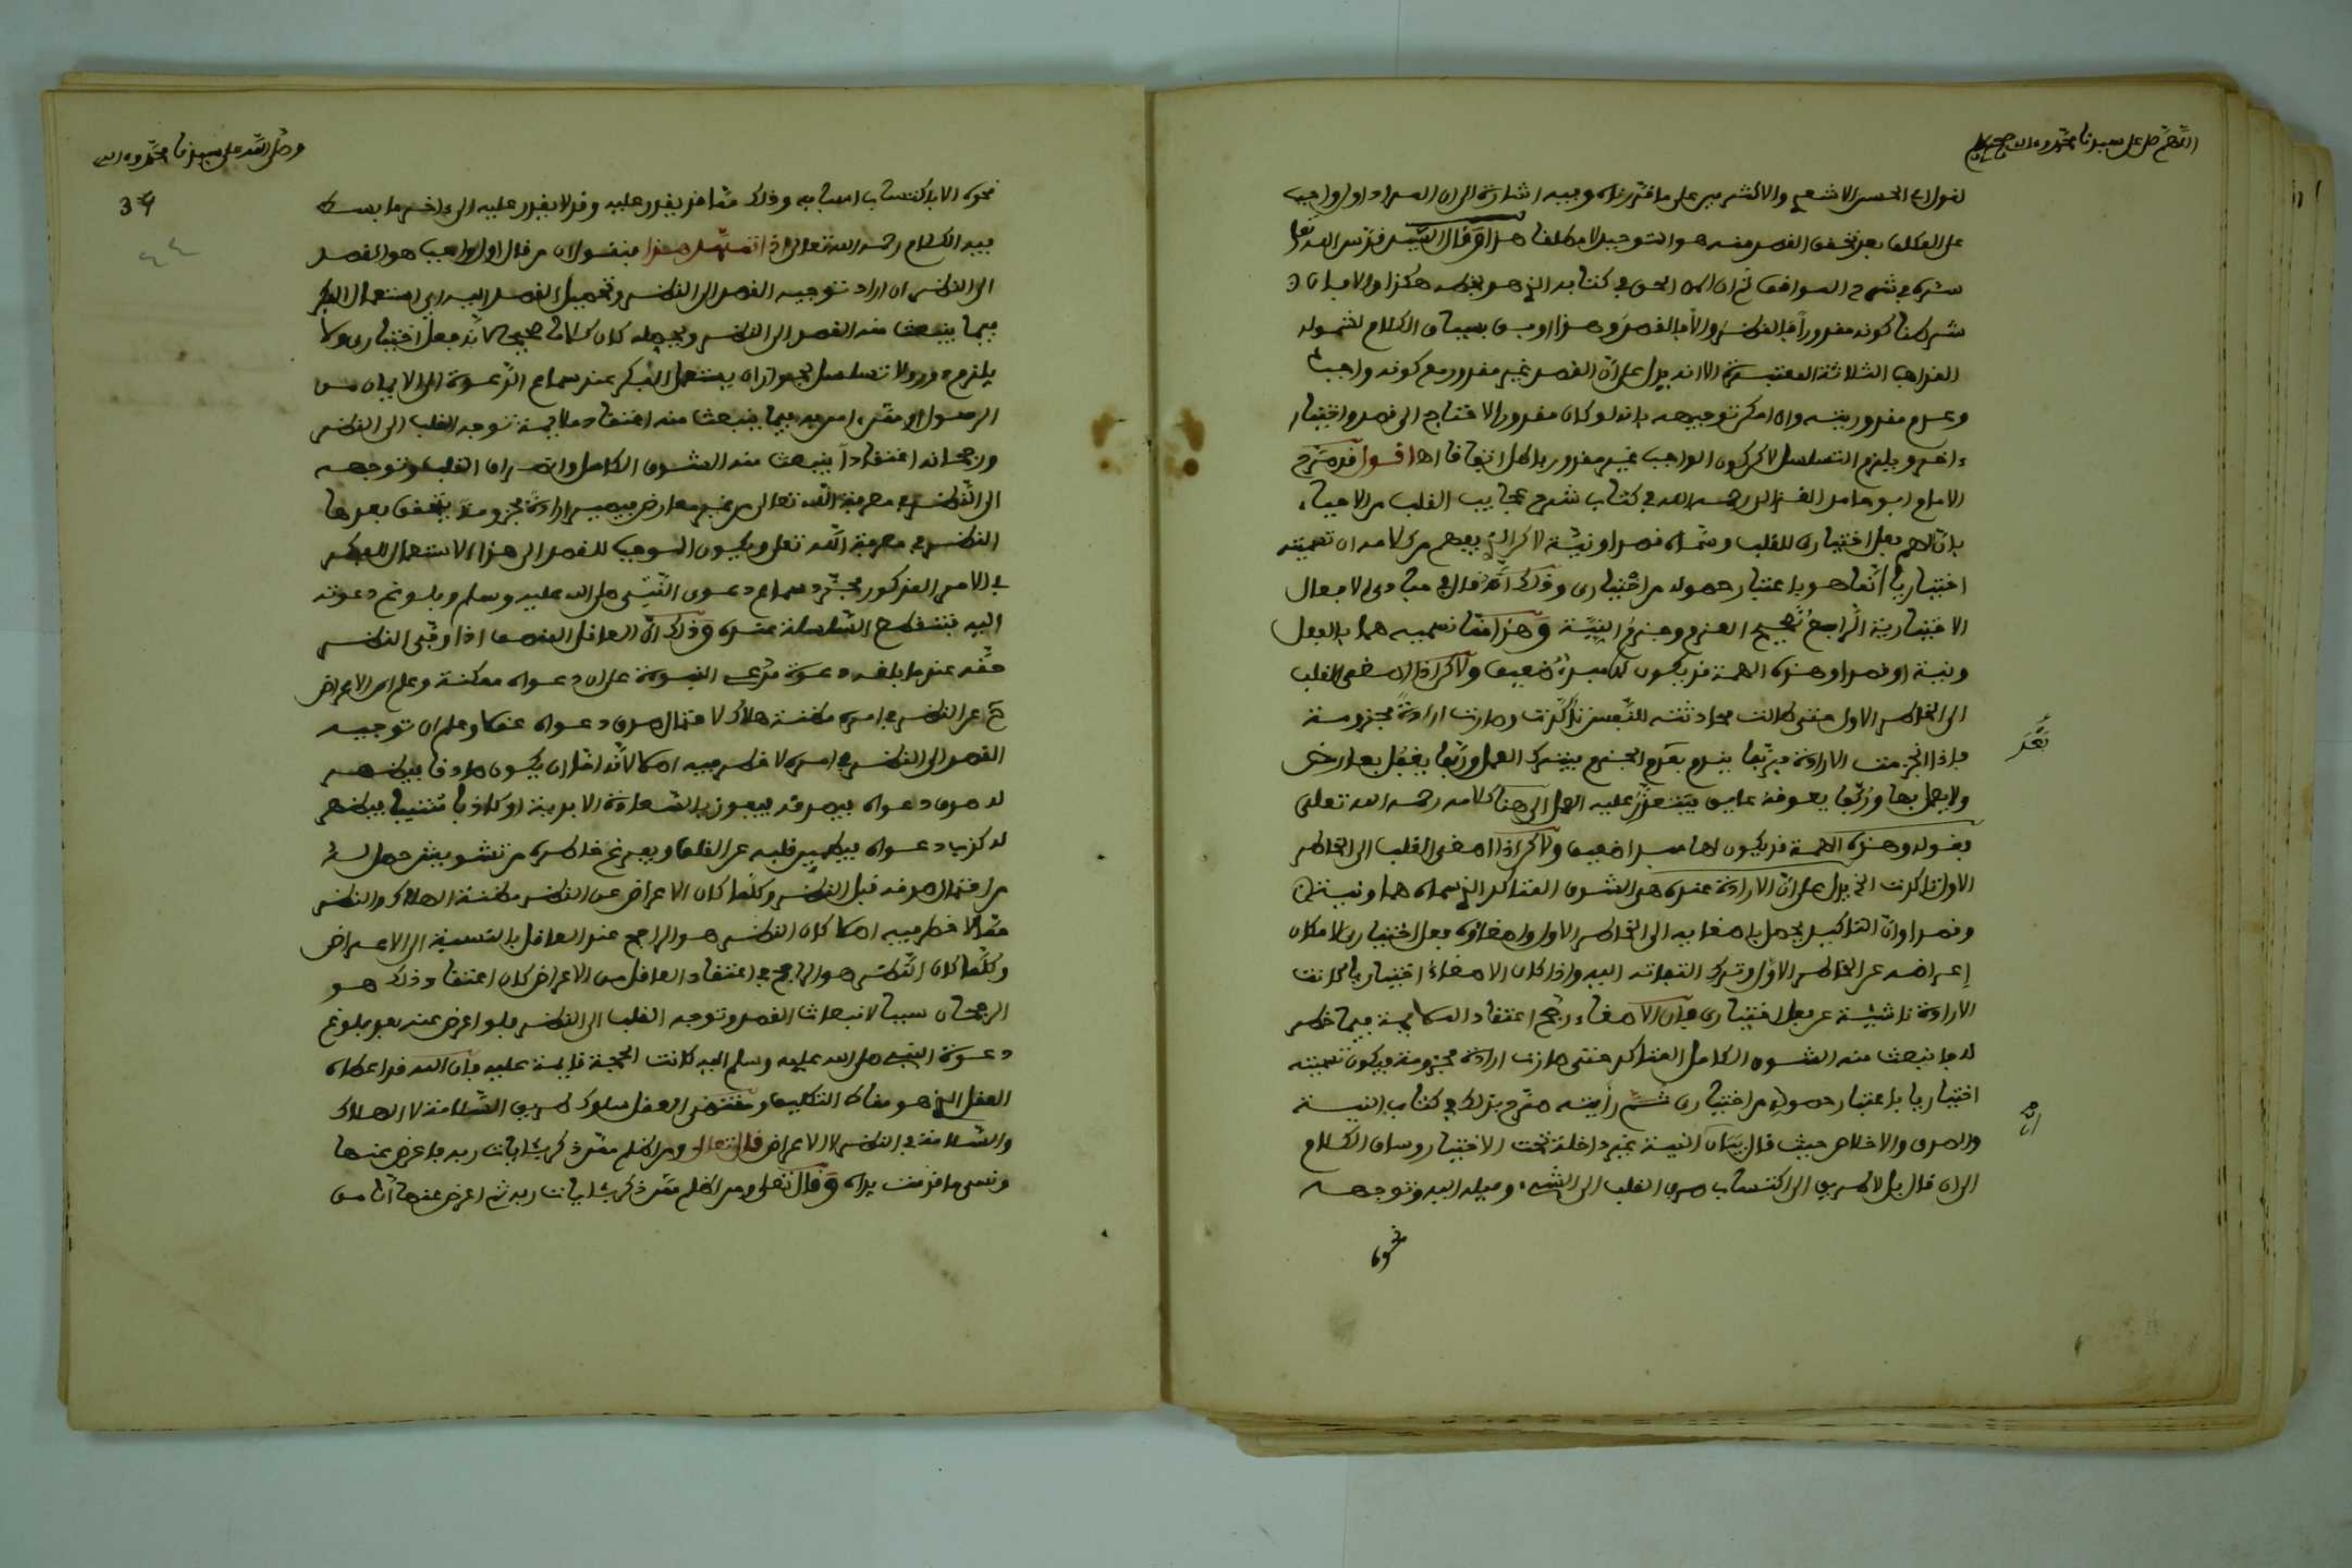 اللهم صل على سيدنا محمد وءاله وصحبه
لقول ابى الحسن الاشعري والاكثرين على ما قررناه وفيه اشارة الى ان المراد اول واجب
على المكلف بعد تحقق القصد منه هو التوجيه لا مطلقا هذا وقال السيد قدس الله تعالى
سره في شرح المواقف ثم ان الحق في كتابه الذي هو بخطه هكذا والا فان
شرطنا كونه مقدوراً فالنظر والا فالقصد وهذا اوفق بسياق الكلام لشموله
المذاهب الثلاثة المعتبرة الا انه يدل على ان القصد غير مقدور مع كونه واجبا
وعدم مقدوريته وان امكن توجيهه بانه لو كان مقدورا لاحتاج الى قصد واختيار
ءاخر ويلزم التسلسل لاكن كون الواجب غير مقدور باطل اتفاقا اهـ اقول قد صرح
الامام ابو حامد الغزالي رحمه الله في كتاب شرح عجايب القلب من الاحياء
بان الهم فعل اختياري للقلب وسماه قصدا ونية لاكن الذي يفهم من كلامه ان تسميته
اختياريا انما هو باعتبار حصوله من اختياري وذلك انه قال في مبادي الافعال
الاختيارية الرابع تصميم العزم وجزم النية وهذا ما نسميه هما بالفعل
ونية او قصدا وهذه الهمة قد يكون لها مبدأ ضعيف ولاكن اذا اصغى القلب
الى الخاطر الاول حتى طالت محادثته للنفس تأكدت وصارت ارادة مجزومة
فإذا انجزمت الارادة فربما يندم بعد الجزم فيترك العمل وربما يغفل بعارض
بَعْدَ
ولا يعمل بها وربما يعوقه عايق فيتعذر عليه العمل الى هنا كلامه رحمه الله تعلى
فقوله وهذه الهمة قد يكون لها مبدا ضعيف ولاكن اذا اصغى القلب الى الخاطر
الاول تاكدت الخ يدل على ان الارادة عنده هي الشوق المتاكد الذي سماه هما ونية
وقصدا وان التاكيد يحصل باصغايه الى الخاطر الاول واصغاؤه فعل اختياري لامكان
إعراضه عن الخاطر الاول وترك التفاته اليه واذا كان الاصغاء اختياريا كانت
الارادة ناشئة عن فعل اختياري فان الاصغاء رجح اعتقاد الملايمة فيما خطر
له فانبعث منه الشوق الكامل المتاكد حتى صارت ارادة مجزومة فيكون تسميته
اختياريا باعتبار حصوله من اختياري ثم رأيته صرح بذلك في كتاب النية
والصدق والاخلاص حيث قال بيان ان النية غير داخلة تحت الاختيار وساق الكلام
ان
الى ان قال بل لا طريق الى اكتساب صرف القلب الى الشيء وميله اليه وتوجهه
نحوه
وصلى الله على سيدنا محمد وءاله
34
٤٤
نحوه الا باكتساب اسبابه وذلك مما قد يقدر عليه وقد لا يقدر عليه الى ءاخر ما بسط
فيه الكلام رحمه الله تعالى اذا تمهل هذا فنقول ان من قال اول الواجب هو القصد
الى النظر ان اراد توجيه القصد الى النظر وتحصيل القصد اليه اى استعمال الفكر
فيما ينبعث منه القصد الى النظر ويحصله كان كلاما صحيحا لانه فعل اختياري ولا
يلزم دور ولا تسلسل لجواز ان يستعمل الفكر عند سماع الدعوة الى الايمان من
الرسول او مثله امر به فيما ينبعث منه اعتقاد ملايمة توجه القلب الى النظر
ورجحانه اعتقادا ينبعث منه الشوق الكامل وانصراف القلب وتوجهه
الى النظر في معرفة الله تعالى من غير معارض فيصير ارادة مجزومة يتحقق بعدها
النظر في معرفة الله تعلى ويكون الموجب للقصد الى هذا الاستعمال للفكر
في الامر المذكور مجرد سماع دعوى النبي صلى الله عليه وسلم وبلوغ دعوته
اليه فتنقطع السلسلة عنده وذلك ان العاقل المنصف اذا وفى النظر
حقه عند ما بلغه دعوة مدعي النبوة علم ان دعواه ممكنة وعلم ان الاعراض
عن النظر في امره مظنة هلاك لاحتمال صدق دعواه عقلا وعلم ان توجيه
القصد الى النظر في امره لا خطر فيه اصلا لانه اما ان يكون صادقا فيظهر
له صدق دعواه فيصدقه فيفوز بالسعادة الابدية او كاذبا متنبيا فيظهر
له كذب دعواه فيطهر قلبه عن القلق ويفرغ خاطره من تشويش حصل له
من احتمال صدقه قبل النظر وكلما كان الاعراض عن النظر مظنة الهلاك والنظر
مما لا خطر فيه اصلا كان النظر هو الراجح عند العاقل بالنسبة الى الاعراض
وكلما كان النظر هو الراجح في اعتقاد العاقل من الاعراض كان اعتقاد ذلك هو
الرجحان سببا لانبعاث القصد وتوجه القلب الى النظر فلو اعرض عنه بعد بلوغ
دعوة النبي صلى الله عليه وسلم اليه كانت الحجة قايمة عليه فان الله قد اعطاه
العقل الذي هو مناط التكليف ومقتضى العقل سلوك طريق السلامة لا الهلاك
والسلامة في النظر لا الاعراض قال تعالى ومن اظلم ممن ذكر بئايات ربه فاعرض عنها
ونسي ما قدمت يداه وقال تعلى ومن اظلم ممن ذكر بئايات ربه ثم اعرض عنها انا من